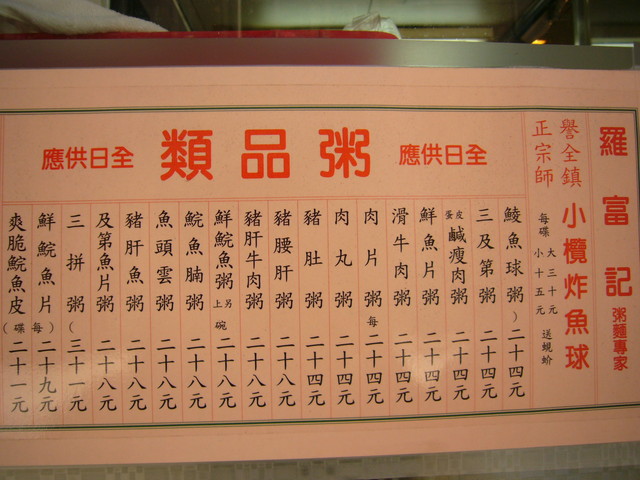 羅富記粥麵專家
譽全鎮
正宗師
小欖炸魚球
每碟 大三十元 小十五元 送蜆蚧
全日供應 粥品類 全日供應
鯪魚球粥 二十四元
三及第粥 二十四元
皮蛋鹹瘦肉粥 二十四元
鮮魚片粥 二十四元
滑牛肉粥 二十四元
肉片粥(每) 二十四元
肉丸粥 二十四元
豬肚粥 二十四元
豬腰肝粥 二十八元
豬肝牛肉粥 二十八元
鮮鯇魚粥 另上碗 二十八元
鯇魚腩粥 二十八元
魚頭雲粥 二十八元
豬肝魚粥 二十八元
及第魚片粥 二十八元
三拼粥 三十一元
鮮鯇魚片(每 二十九元
爽脆鯇魚皮 碟) 二十一元